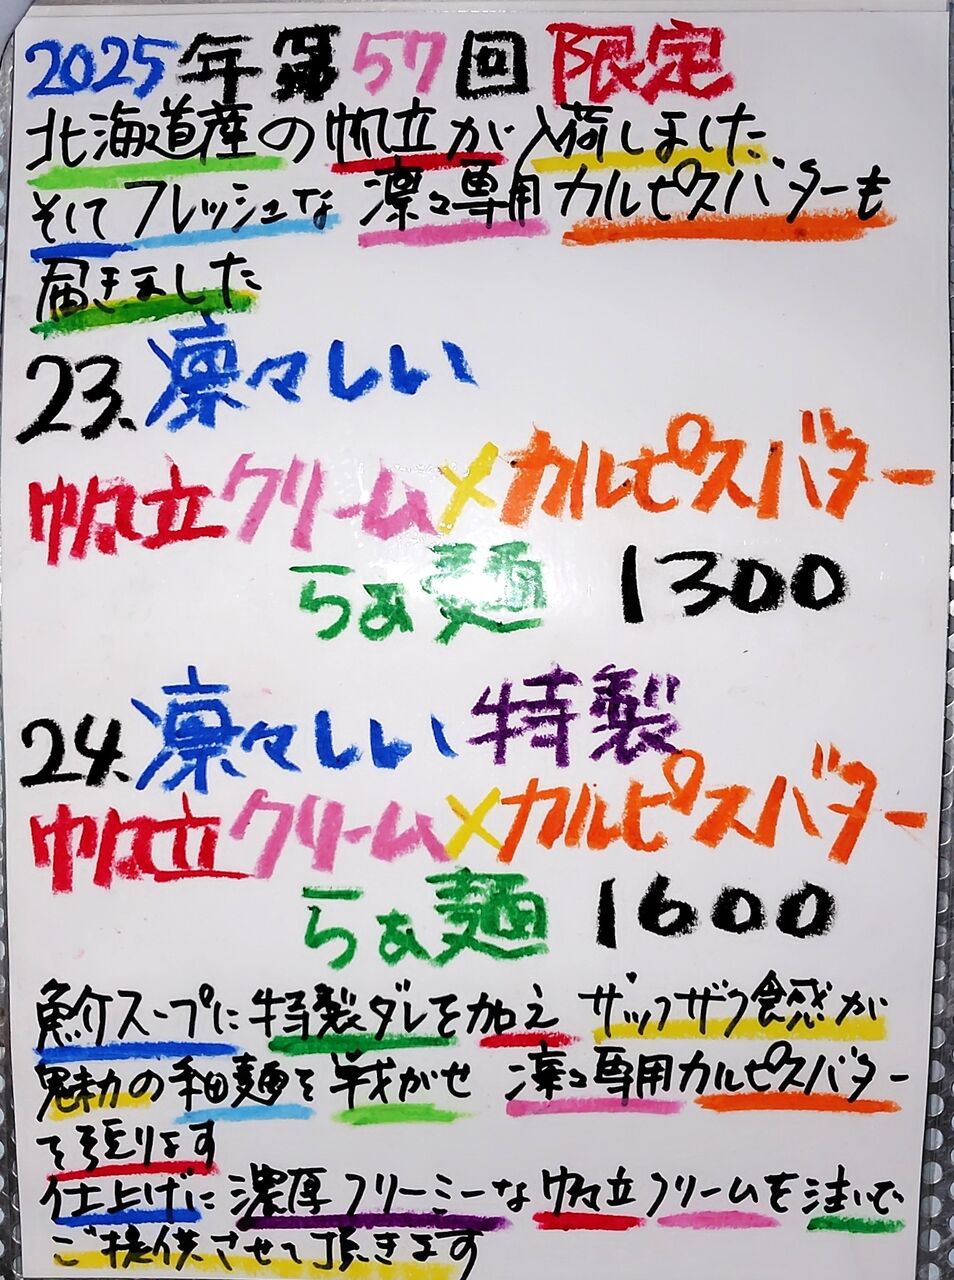 2025年第57回限定
北海道産の帆立が入荷しました
そしてフレッシュな凛々専用カルピスバターも
届きました
23.凛々しい
帆立クリーム×カルピスバター
らぁ麺 1300
24.凛々しい特製
帆立クリーム×カルピスバター
らぁ麺 1600
魚介スープに特製ダレを加え ザックザク食感が
魅力の細麺を泳がせ 凛々専用カルピスバター
を張ります
仕上げに濃厚クリーミーな帆立クリームを注いで
ご提供させて頂きます